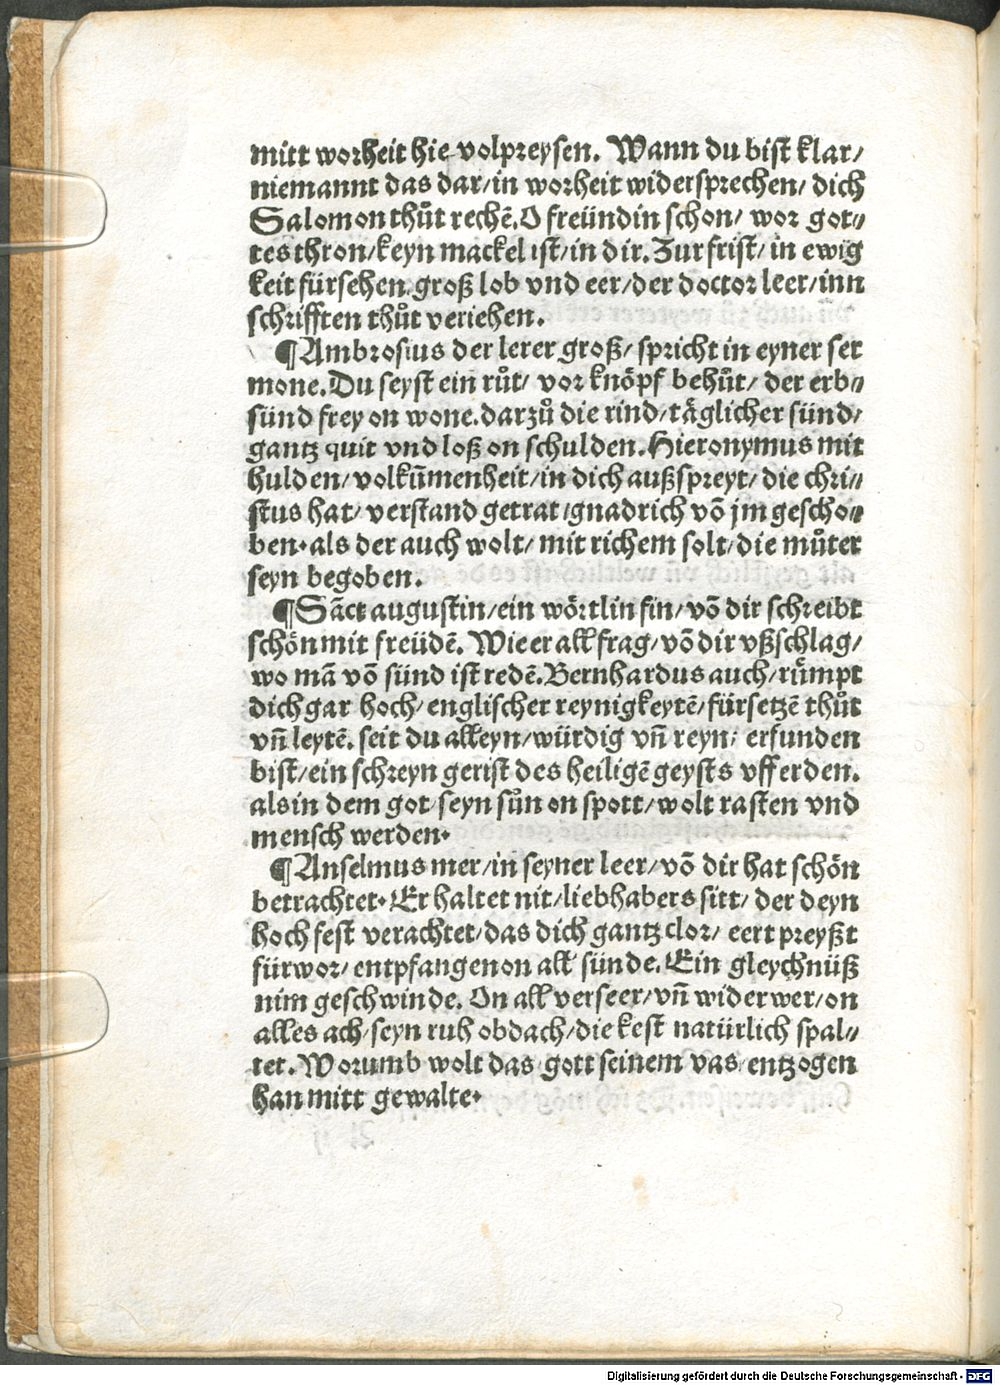 mitt worheit hie volpreysen. Wann du bist klar/
niemannt das dar/in worheit widersprechen/ dich
Salomon thůt rechē. O freündin schon/ wor got⸗
tes thron/keyn mackel ist/in dir. Zur frist/ in ewig
keit fürsehen. groß lob vnd eer/der doctor leer/inn
schrifften thůt veriehen.
¶Ambrosius der lerer groß/ spricht in eyner ser
mone. Du seyst ein růt/ vor knöpf behůt/ der erb⸗
sünd frey on wone. darzů die rind/täglicher sünd/
gantz quit vnd loß on schulden. Hieronymus mit
hulden/volkūmenheit/in dich außspreyt/die chri⸗
stus hat/ verstand getrat/gnadrich vō jm gescho⸗
ben. als der auch wolt/ mit richem solt/die můter
seyn begoben.
¶Sāct augustin/ein wörtlin fin/vō dir schreibt
schön mit freüdē. Wie er all frag/vō dir vßschlag/
wo mā vō sünd ist redē. Bernhardus auch/růmpt
dich gar hoch/englischer reynigkeytē/fürsetzē thůt
vñ leytē. seit du alleyn/würdig vñ reyn/ erfunden
bist/ein schreyn gerist des heiligē geysts vff erden.
als in dem got/seyn sůn on spott/wolt rasten vnd
mensch werden.
¶Anselmus mer/in seyner leer/vō dir hat schön
betrachtet. Er haltet nit/liebhabers sitt/ der deyn
hoch fest verachtet/das dich gantz clor/ eert preyßt
fürwor/entpfangen on all sünde. Ein gleychnüß
nim geschwinde. On all verseer/vñ widerwer/on
alles ach/seyn ruh obdach/die kest natürlich spal⸗
tet. Worumb wolt das gott seinem vas/entzogen
han mitt gewalte.
Digitalisierung gefördert durch die Deutsche Forschungsgemeinschaft - DFG